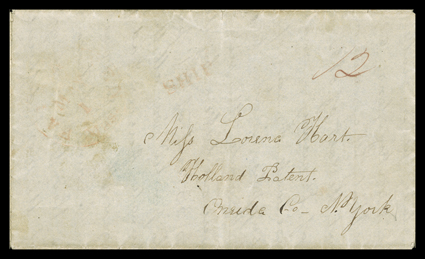 SHIP
12
Miss Lorena Hart.
Holland Patent.
Oneida Co- N. York